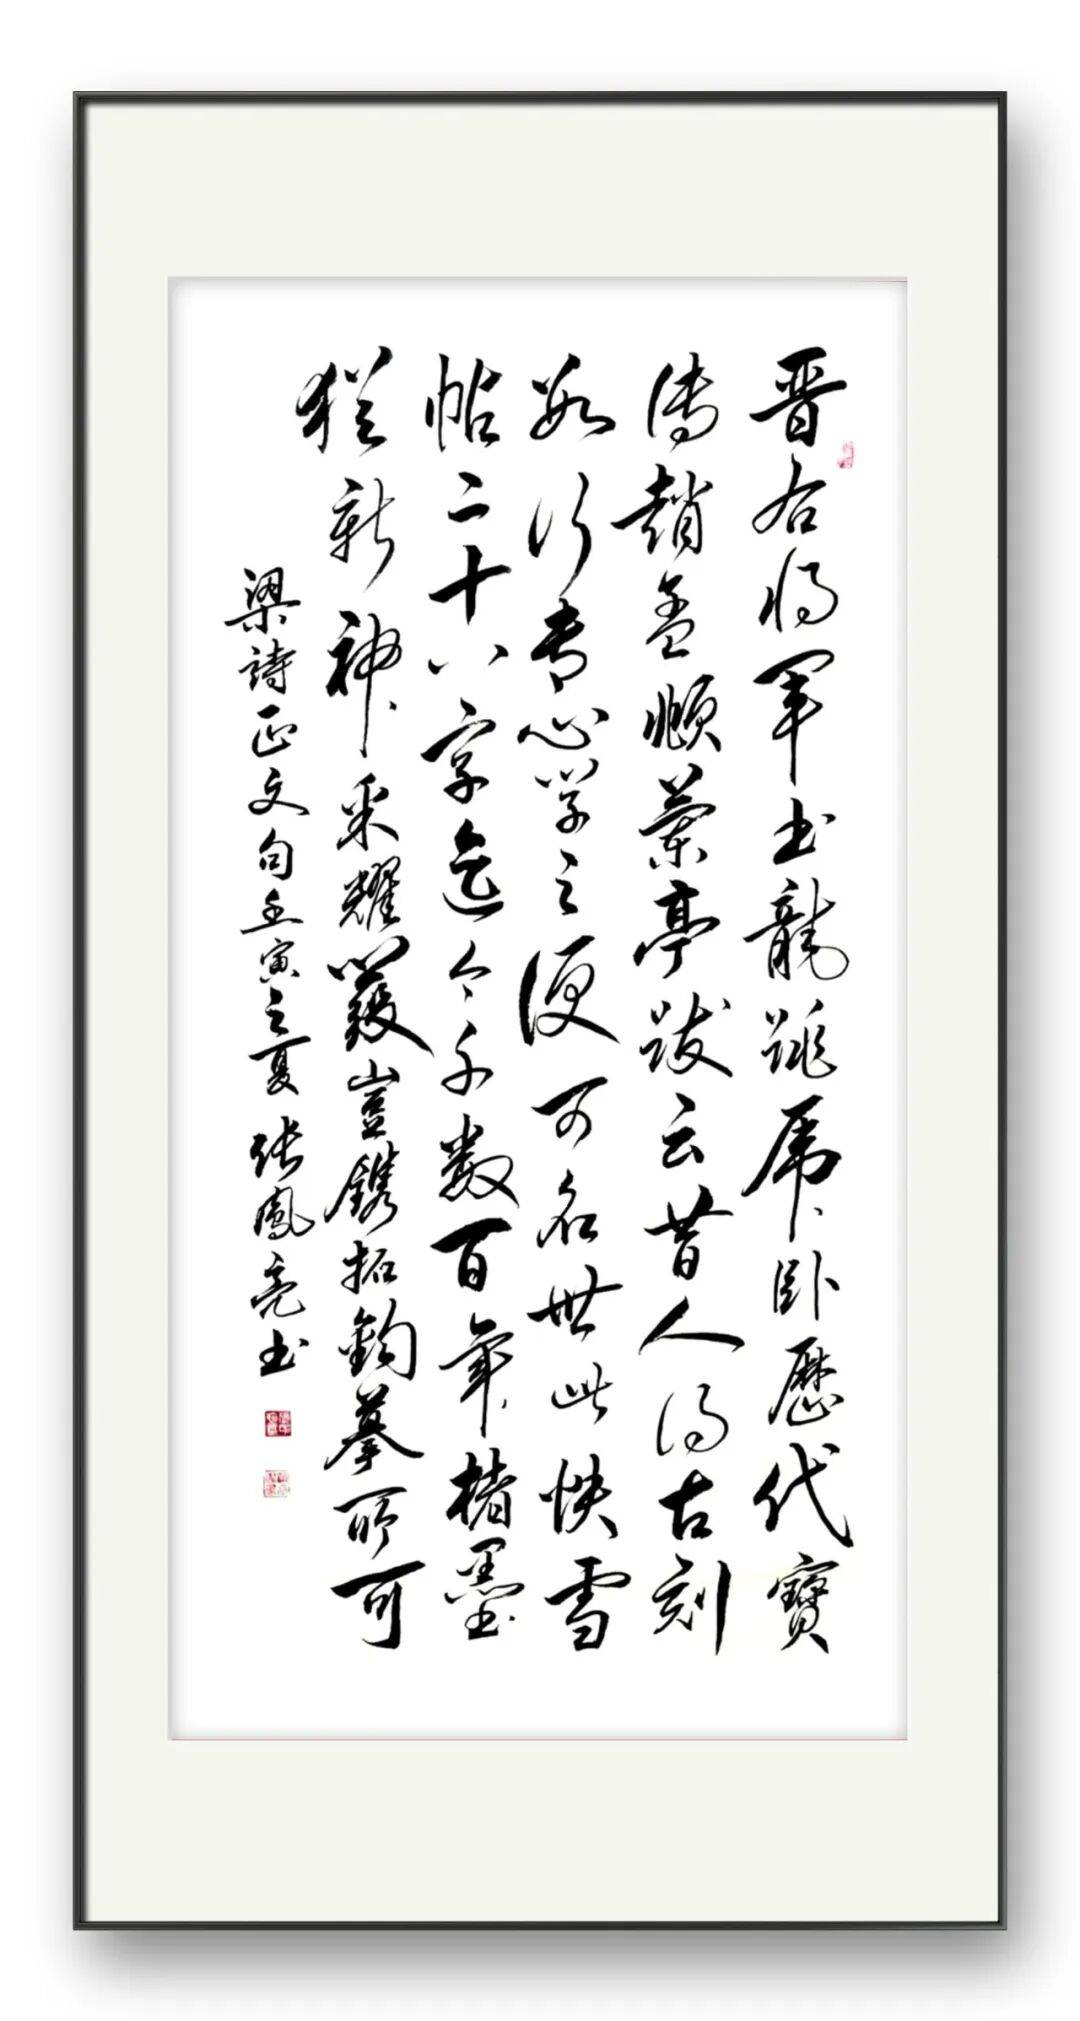 晋右将军书龍跳虎卧歷代寶
傳趙孟頫蘭亭跋云昔人得古刻
数行専心学之便可名世此快雪
帖二十八字迄今千数百年楮墨
猶新神采耀叢豈鐫拓鈎摹所可
梁詩正文句壬寅之夏张鳳亮书